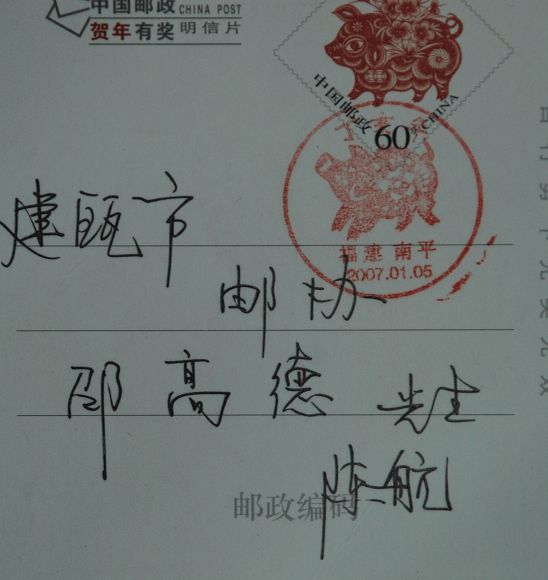 中国邮政 CHINA POST
贺年有奖 明信片
中国邮政 60 CHINA
福建 南平
2007.01.05
建瓯市
邮协
邵高德 先生
陈航
邮政编码